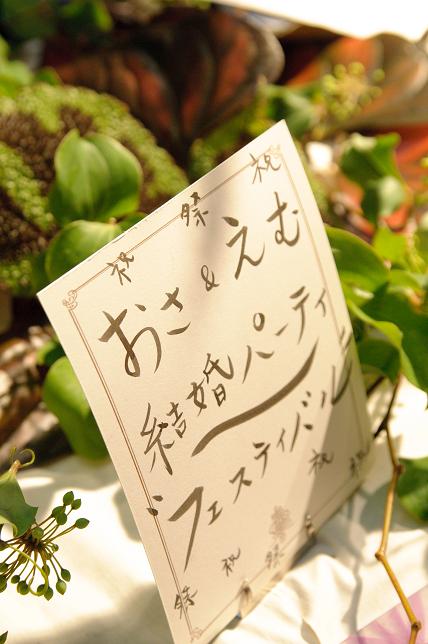 祝 祭 祝
おさ & えむ
結婚パーティ
フェスティバル
祭 祝 祭 祝 祝